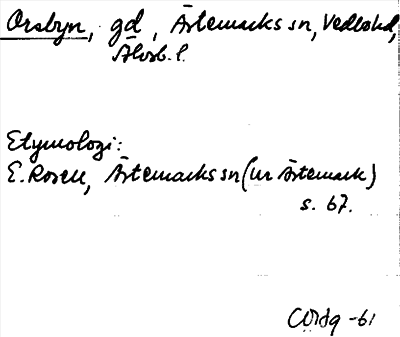 Orsbyn, gd, Ärtemarks sn, Vedbo hd,
Älvsb. l.
Etymologi:
E. Rosell, Ärtemarks sn (ur Ärtemark)
s. 67.
-61